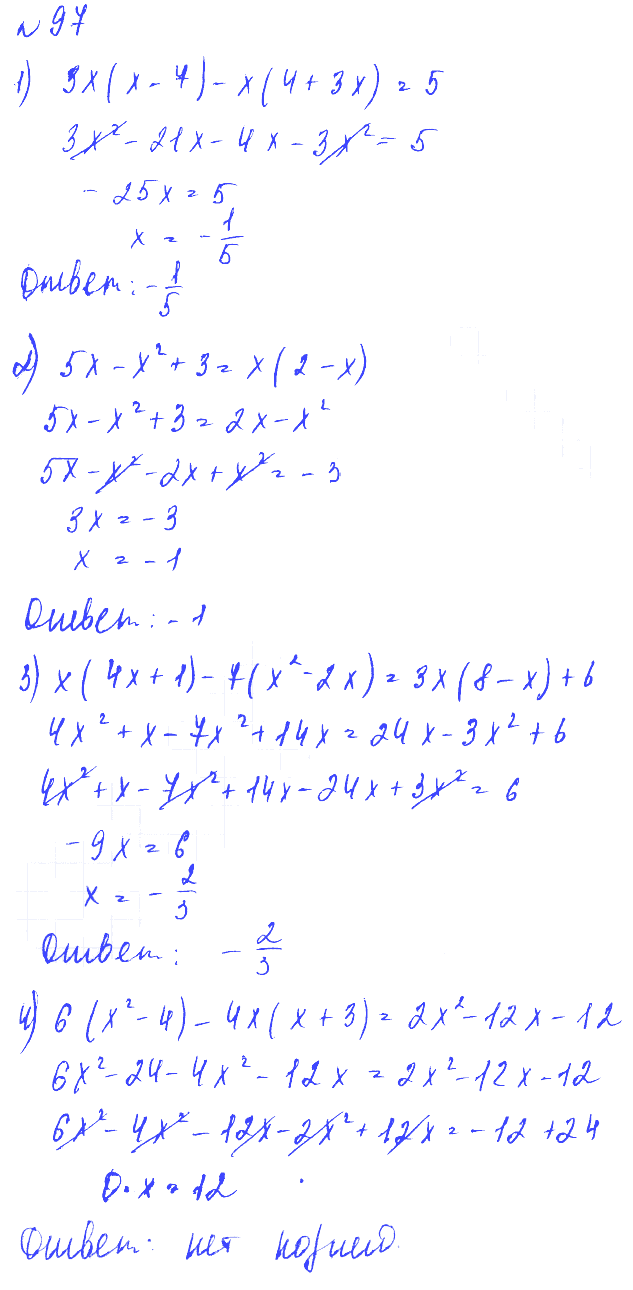 №97
1) 3x(x-7)-x(4+3x)=5
3x²-21x-4x-3x²=5
-25x=5
x=-1/5
Ответ: -1/5
2) 5x-x²+3=x(2-x)
5x-x²+3=2x-x²
5x-x²-2x+x²=-3
3x=-3
x=-1
Ответ: -1
3) x(4x+1)-7(x²-2x)=3x(8-x)+6
4x²+x-7x²+14x=24x-3x²+6
4x²+x-7x²+14x-24x+3x²=6
-9x=6
x=-2/3
Ответ: -2/3
4) 6(x²-4)-4x(x+3)=2x²-12x-12
6x²-24-4x²-12x=2x²-12x-12
6x²-4x²-12x-2x²+12x=-12+24
0·x=12
Ответ: нет корней.